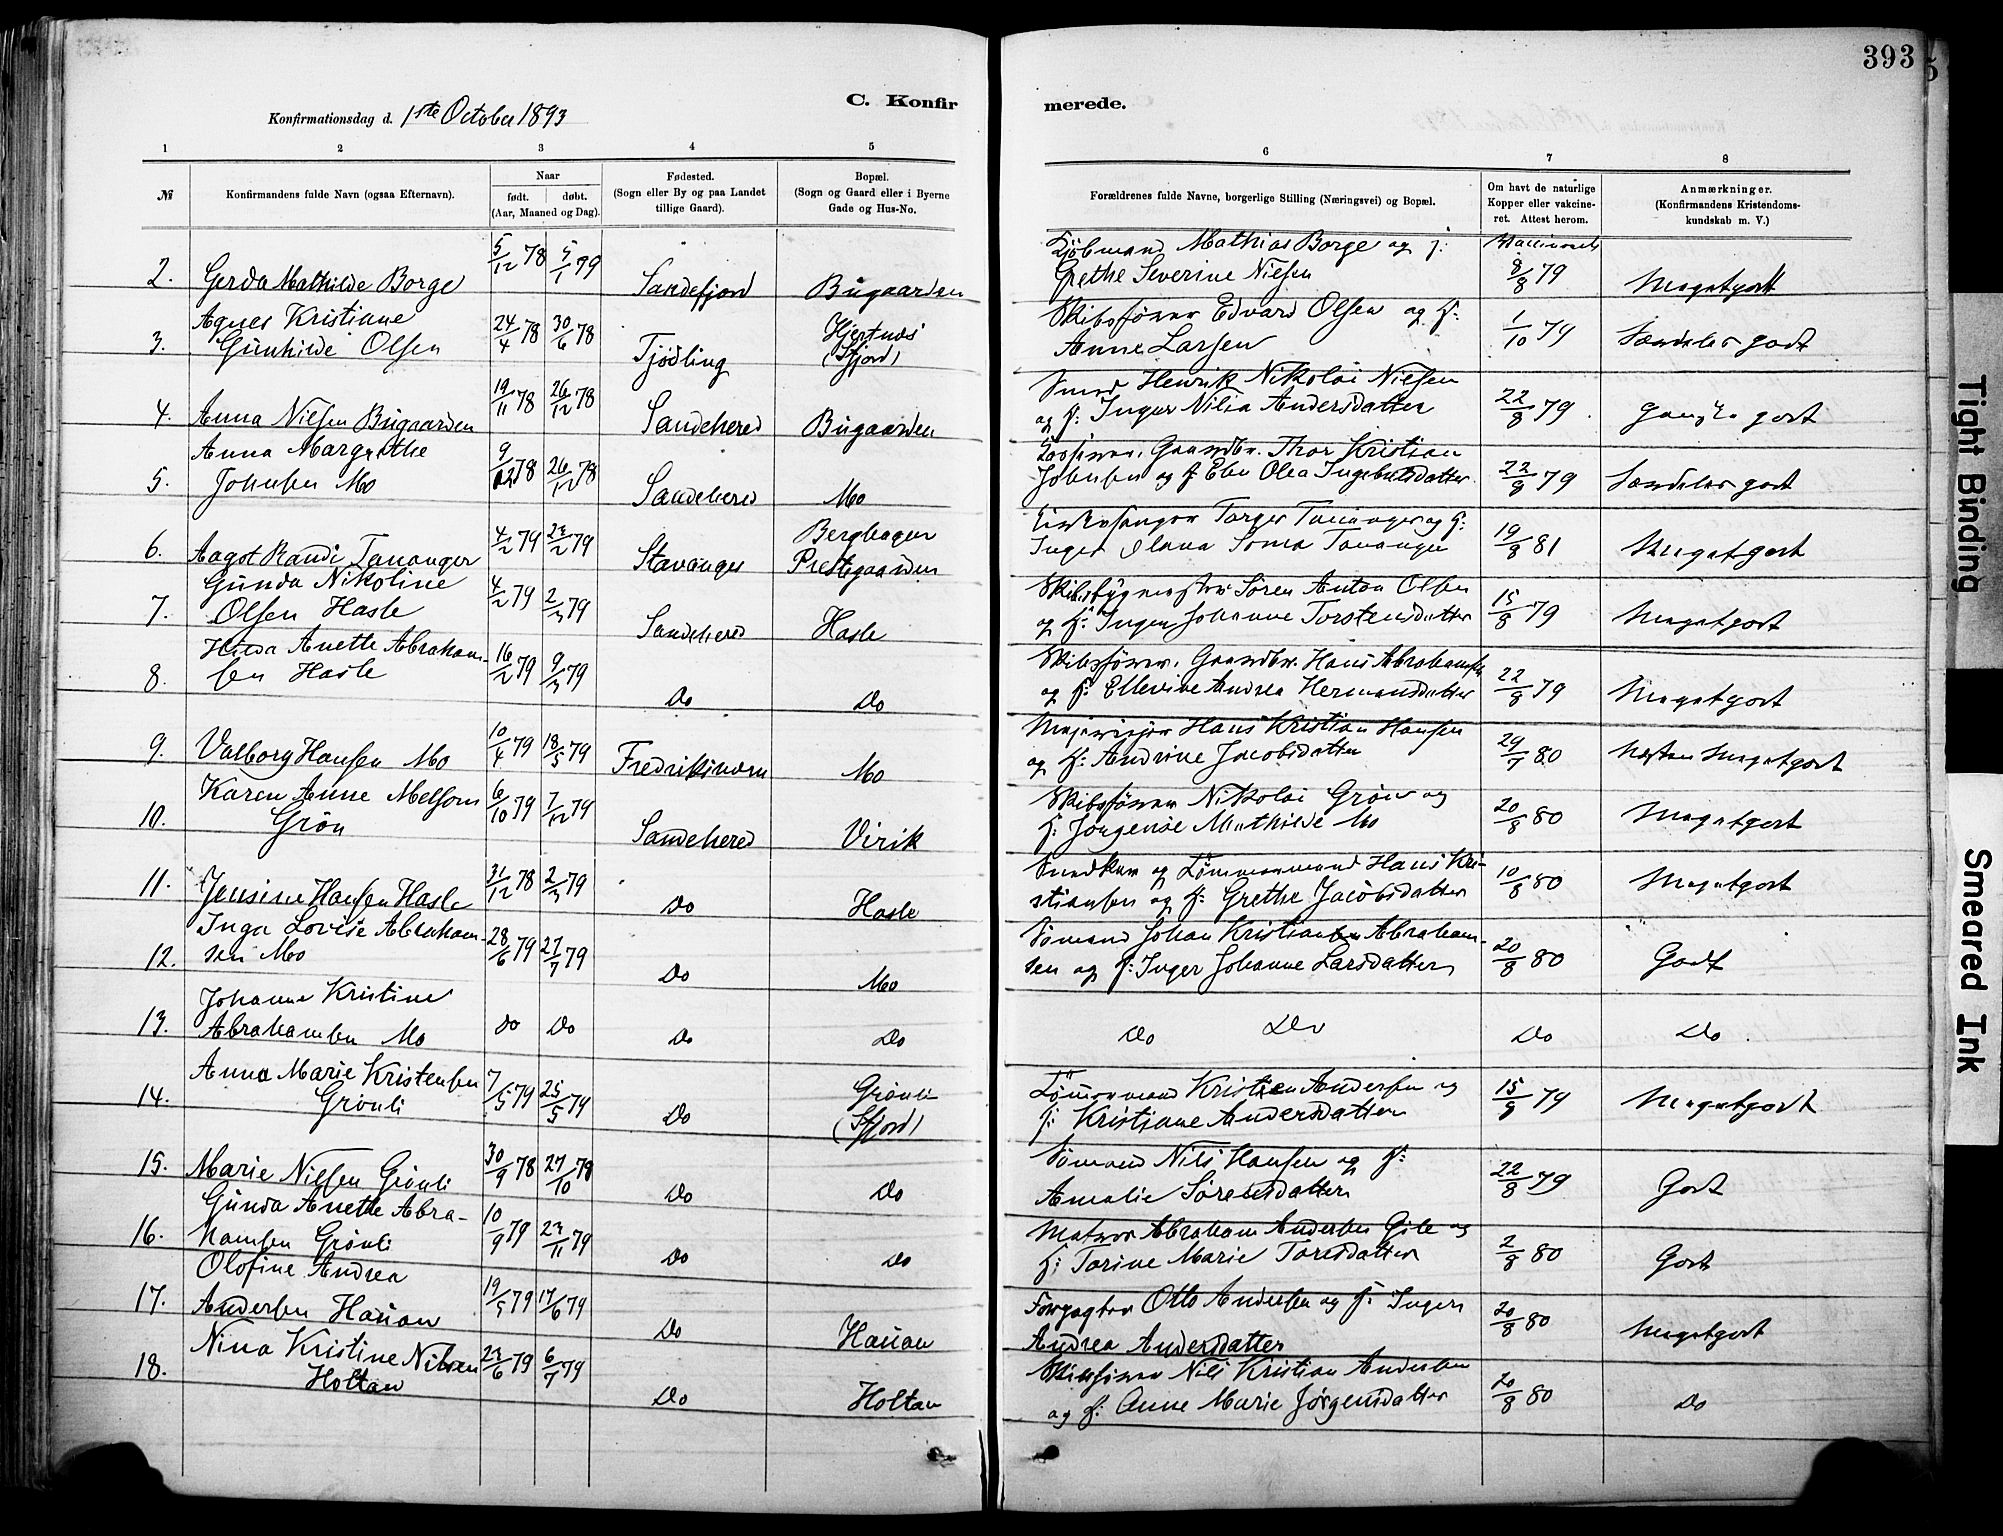 393
C. Konfirmerede.
Konfirmationsdag d. 1ste October 1893
1 2 3 4 5 6 7 8
№
Konfirmandens fulde Navn (ogsaa Efternavn).
Naar
født. døbt.
(Aar, Maaned og Dag).
Fødested.
(Sogn eller By og paa Landet
tillige Gaard).
Bopæl.
(Sogn og Gaard eller i Byerne
Gade og Hus-No.
Forældrenes fulde Navne, borgerlige Stilling (Næringsvei) og Bopæl.
Om havt de naturlige
Kopper eller vakcine-
ret. Attest herom.
Anmærkninger.
(Konfirmandens Kristendoms-
kundskab m. V.)
2. Gerda Mathilde Borge 5/12 78 5/1 79 Sandefjord Bugaarden
Kjöbmand Mathias Borge og f:
Grethe Severine Nielsen 8/8 79 Megetgodt
Agnes Kristiane
3. Gunhilde Olsen 24/4 78 30/6 78 Tjödling Hjertnæs
(Sfjord)
Skibsfören Edvard Olsen og f:
Anne Larsen 1/10 79 Særdeles godt
4. Anna Nielsen Bugaarden 19/11 78 26/12 78 Sandehered Bugaarden
Smed Henrik Nikolai Nielsen
og f: Inger Nilia Andersdatter 22/8 79 ganske godt
Anna Margrethe
5. Johnsen Mo 9/12 78 26/12 78 Sandehered Mo
Gaardbr. Thor Kristian
Johnsen og f Olea Ingebretsdatter 22/8 79 Særdeles godt
6. Aagot Randi Tananger 4/2 79 23/2 79 Stavanger Berghagen
Prestegaarden
Kirkesanger Targer Tananger og f:
Inger Olana Soma Tananger 19/8 81 Megetgodt
Gunda Nikoline
7. Olsen Hasle 4/2 79 2/3 79 Sandehered Hasle
Skibsbygmester Sören Anton Olsen
og f: Inger Johanne Torstensdatter 15/8 79 Megetgodt
Hilda Anette Abraham-
8. sen Hasle 16/2 79 9/3 79 Do Do
Skibsförer, Gaardbr. Hans Abrahamsen
og f: Ellevine Andrea Hermansdatter 22/8 79 Megetgodt
9. Valborg Hansen Mo 10/4 79 18/5 79 Fredriksværn Mo
Hans Kristian Hansen
og f: Andrine Jacobsdatter 29/7 80 Næsten megetgodt
Karen Anne Melsom
10. Grön 6/10 79 7/12 79 Sandehered Virik
Skibsförer Nikolai Grön og
f: Jörgensie Mathilde Mo 20/8 80 Megetgodt
11. Jensine Hansen Hasle 31/12 78 2/3 79 Do Hasle
Snedker og Tömmermand Hans Kri-
stiansen og f: Grethe Jacobsdatter 10/8 80 Megetgodt
Inga Lovise Abraham-
12. sen Mo 28/6 79 27/7 79 Do Mo
Sömand Johan Kristian Abraham-
sen og f: Inger Johanne Larsdatter 20/8 80 Godt
Johanne Kristine
13. Abrahamsen Mo Do Do Do Do
Do Do Do Do
Anna Marie Kristensen
14. Grönli 7/5 79 25/5 79 Do Grönli
(Sfjord)
Tömmermand Kristen Andersen og
f: Kristiane Andersdatter 15/9 79 Megetgodt
15. Marie Nielsen Grönli 30/9 78 27/10 78 Do Do
Sömand Nils Hansen og f:
Amalie Sörensdatter 22/8 79 Godt
Gunda Anette Abra-
16. hamsen Grönli 10/9 79 23/11 79 Do Do
Matros Abraham Andersen Gile og
f: Torine Marie Toresdatter 2/8 80 Godt
Olofine Andrea
17. Andersen Hauan 19/5 79 17/6 79 Do Hauan
Forpagter Otto Andersen og f: Inger
Andrea Andersdatter 20/8 80 Megetgodt
Nina Kristine Nilsen
18. Holtan 23/6 79 6/7 79 Do Holtan
Skibsförer Nils Kristian Andersen
og f: Anne Marie Jørgensdatter 20/8 80 Do
Tight Binding
Smeared Ink